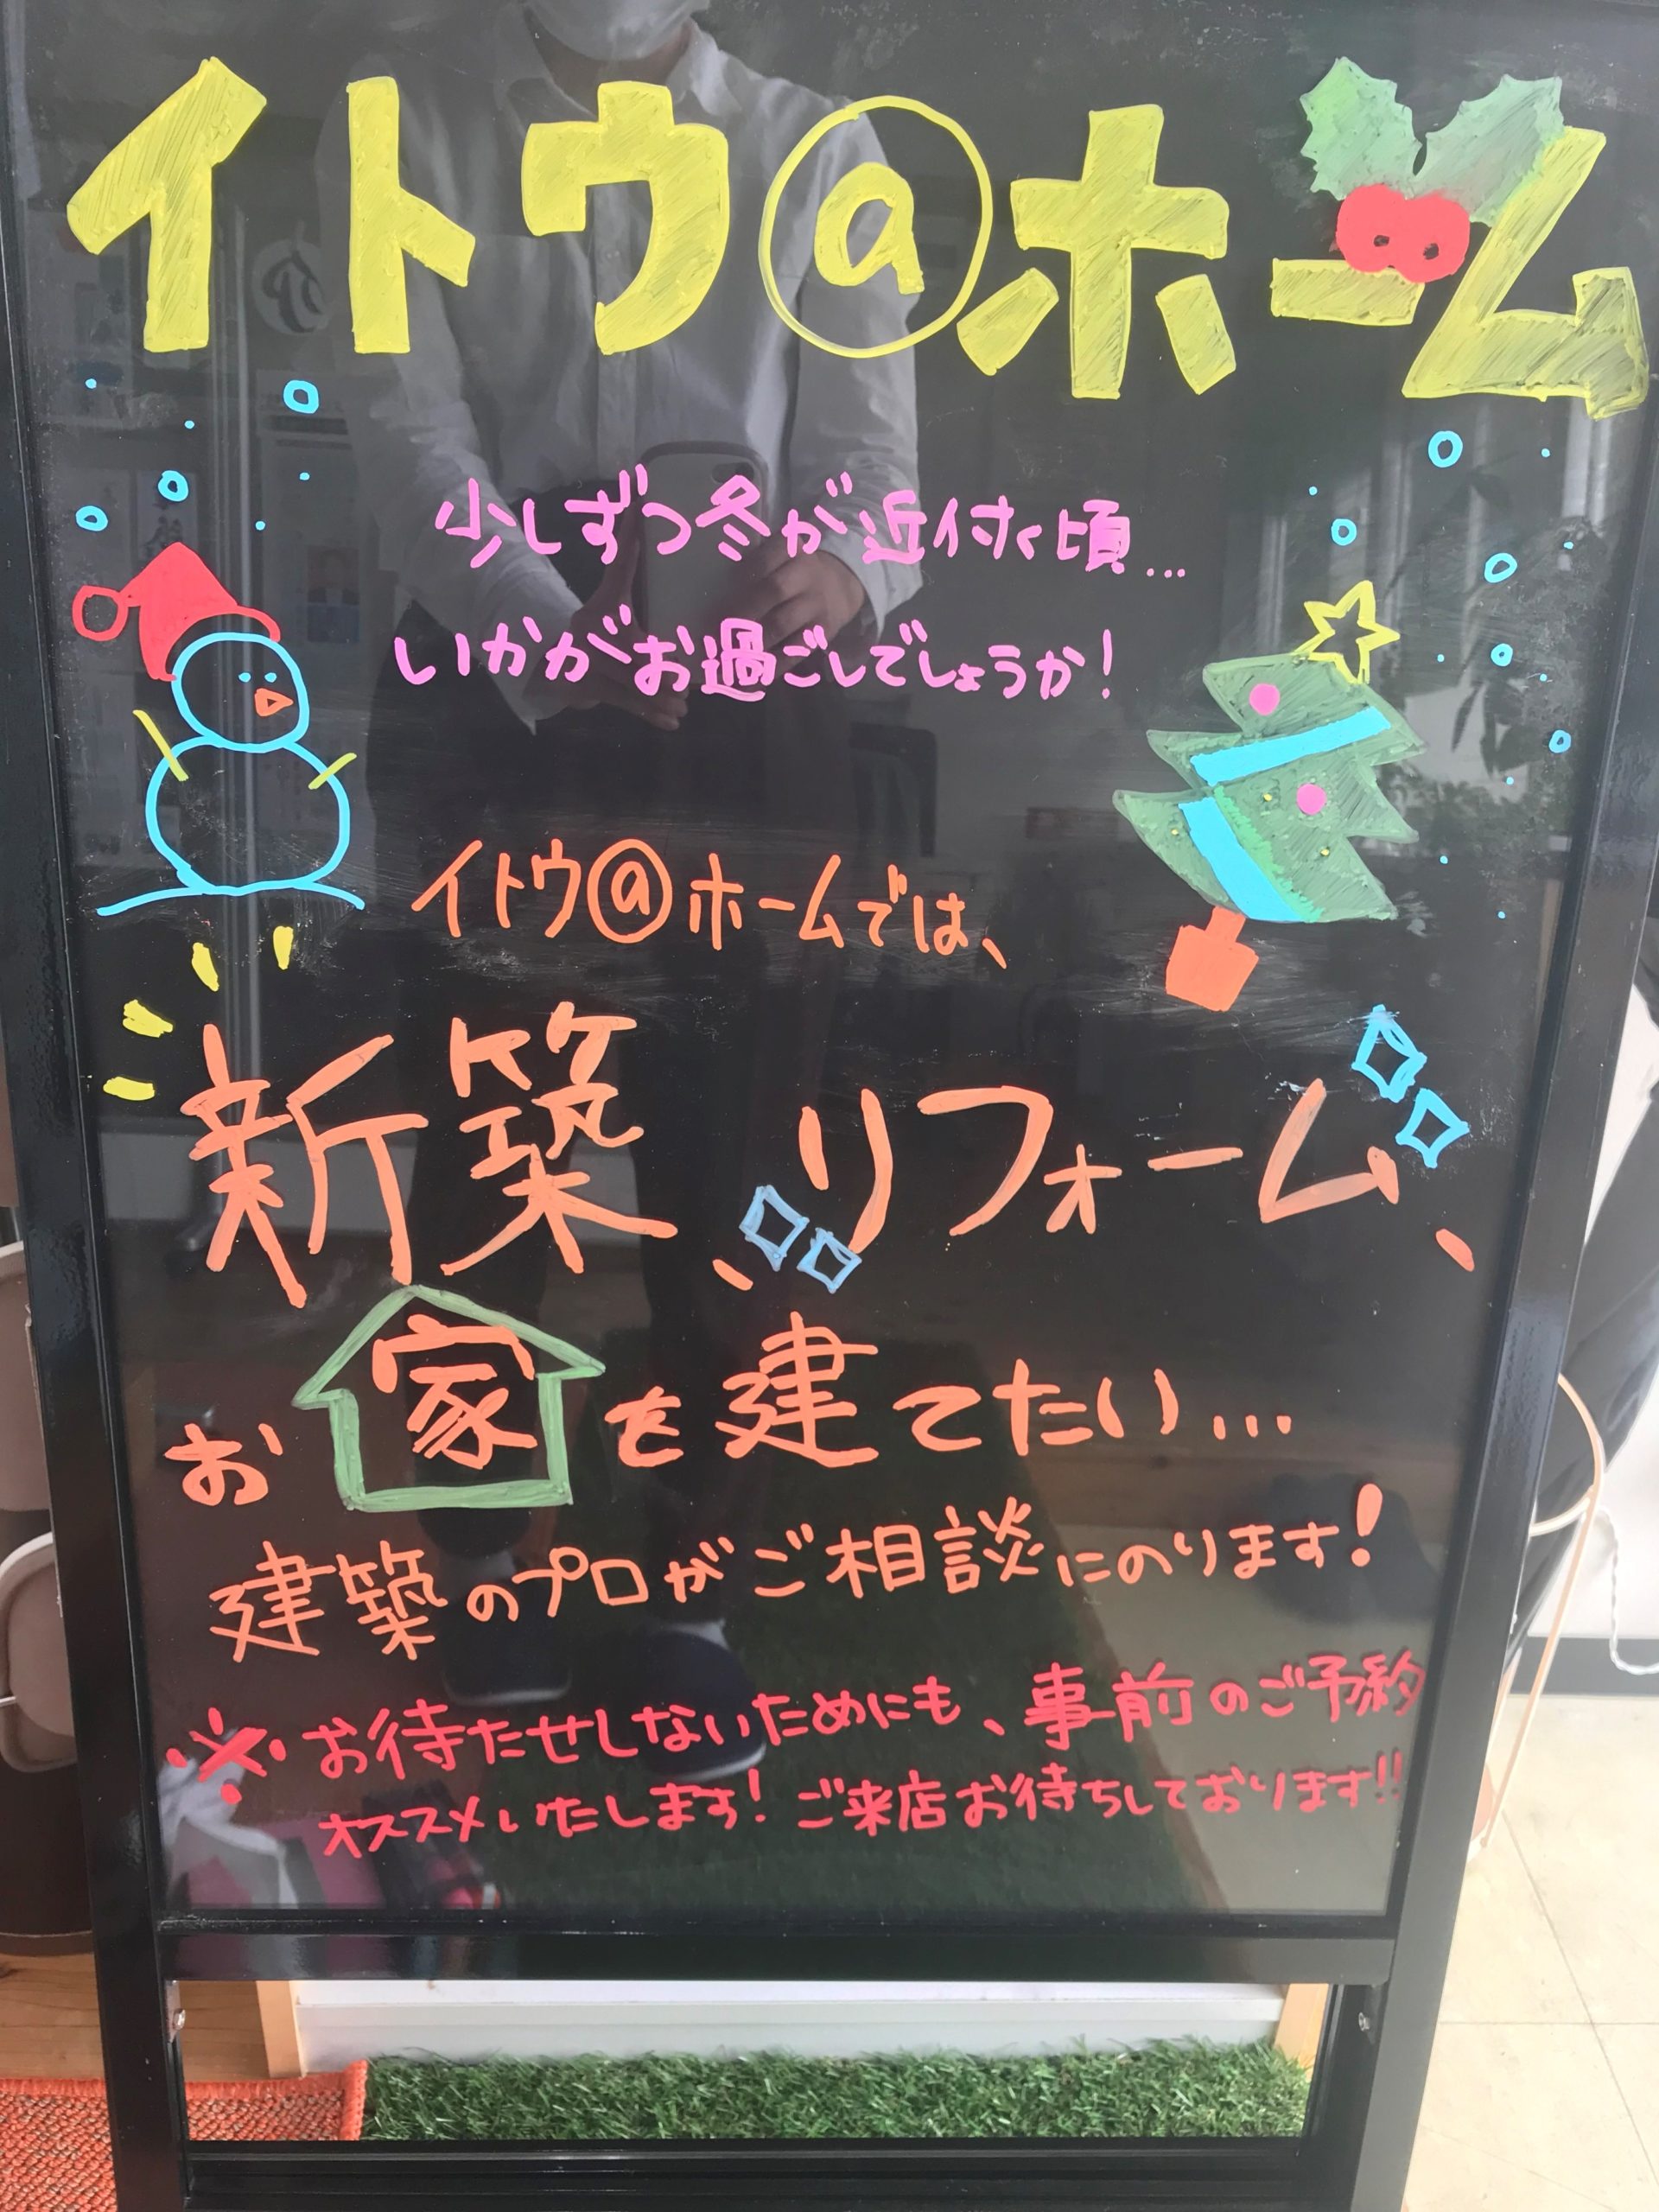 イトウ@ホーム
少しずつ冬が近付く頃...
いかがお過ごしでしょうか!
イトウ@ホームでは、
新築、リフォーム、
お家を建てたい...
建築のプロがご相談にのります!
※お待たせしないためにも、事前のご予約
オススメいたします!ご来店お待ちしております!!